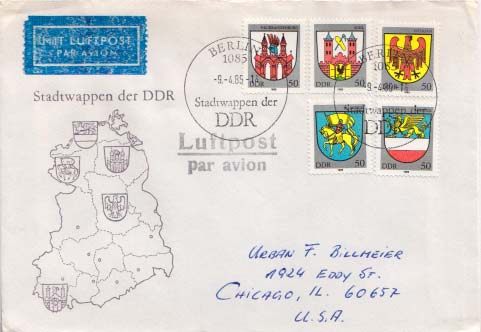 MIT LUFTPOST
PAR AVION
Stadtwappen der DDR
BERLIN
1085
-9.-4.85-14
Stadtwappen der
DDR
Luftpost
par avion
DDR 50
DDR 50
50
DDR 50
DDR 50
BERLIN
1085
Stadtwappen der
DDR
URBAN F. BILLMEIER
1924 EDDY ST.
CHICAGO, IL. 60657
U.S.A.